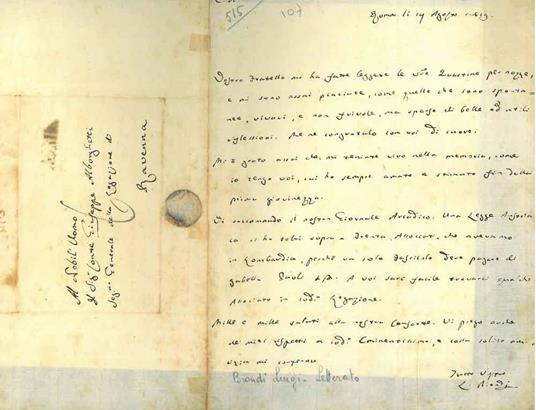 515
107
Roma li 14 Agosto
Vostro fratello mi ha fatto leggere le Quartine per nozze,
e mi sono assai piaciute, come quelle che sono sponta-
nee, vivaci, e non frivole, ma sparse di belle ed utili
riflessioni. Me ne congratulo con voi di cuore.
Mi è grato assai che mi teniate vivo nella memoria, come
io tengo voi, cui ho sempre amato e stimato fin dalla
prima giovinezza.
Vi raccomando il nostro Giornale Arcadico. Una Legge
ca ci ha tolti sopra Associati, che avevamo
in Lombardia, perchè un solo fascicolo deve pagare di
gabella Paoli A voi sarà facile trovarci qualche
Associato in Legazione.
Mille e mille saluti alla vostra Consorte. Vi prego anche
de' miei rispetti a Eminentissimo, e colla solita ami-
cizia mi confermo
L. Biondi
Biondi Luigi Letterato
Al Nobil Uomo
Il Sig. Conte Giuseppe Alborghetti
Seg. Generale della Legazione di
Ravenna